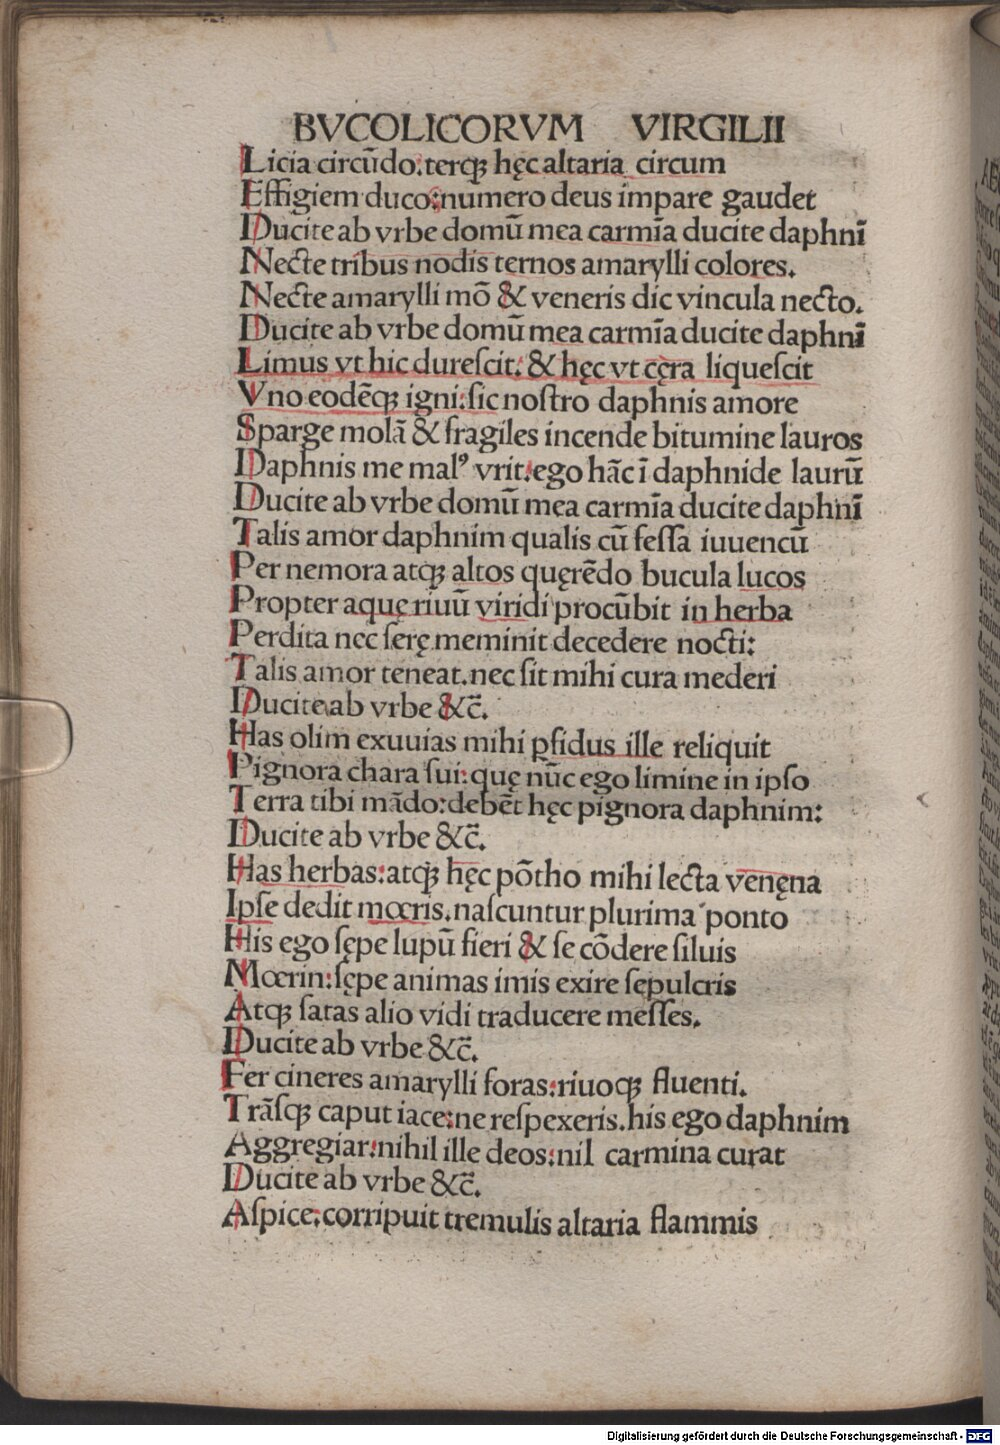 BVCOLICORVM VIRGILII
Licia circūdo:terqꝫ hęc altaria circum
Effigiem duco:numero deus impare gaudet
Ducite ab vrbe domū mea carmīa ducite daphnī
Necte tribus nodis ternos amarylli colores.
Necte amarylli mō & veneris dic vincula necto.
Ducite ab vrbe domū mea carmīa ducite daphnī
Limus vt hic dureſcit: & hęc vt cęra liqueſcit
Vno eodēqꝫ igni:ſic noſtro daphnis amore
Sparge molā & fragiles incende bitumine lauros
Daphnis me malꝰ vrit:ego hāc ī daphnide laurū
Ducite ab vrbe domū mea carmīa ducite daphnī
Talis amor daphnim qualis cū feſſa iuuencū
Per nemora atqꝫ altos quęrēdo bucula lucos
Propter aquę riuū viridi procūbit in herba
Perdita nec ſerę meminit decedere nocti:
Talis amor teneat.nec ſit mihi cura mederi
Ducite ab vrbe &c̄.
Has olim exuuias mihi pſidus ille reliquit
Pignora chara ſui:quę nūc ego limine in ipſo
Terra tibi mādo:debēt hęc pignora daphnim:
Ducite ab vrbe &c̄.
Has herbas:atqꝫ hęc pōtho mihi lecta venęna
Ipſe dedit mœris.naſcuntur plurima ponto
His ego ſępe lupū fieri & ſe cōdere ſiluis
Mœrin:ſępe animas imis exire ſepulcris
Atqꝫ ſatas alio vidi traducere meſſes.
Ducite ab vrbe &c̄.
Fer cineres amarylli foras:riuoqꝫ fluenti.
Trāſqꝫ caput iace:ne reſpexeris.his ego daphnim
Aggregiar:nihil ille deos:nil carmina curat
Ducite ab vrbe &c̄.
Aſpice:corripuit tremulis altaria flammis
Digitalisierung gefördert durch die Deutsche Forschungsgemeinschaft - DFG